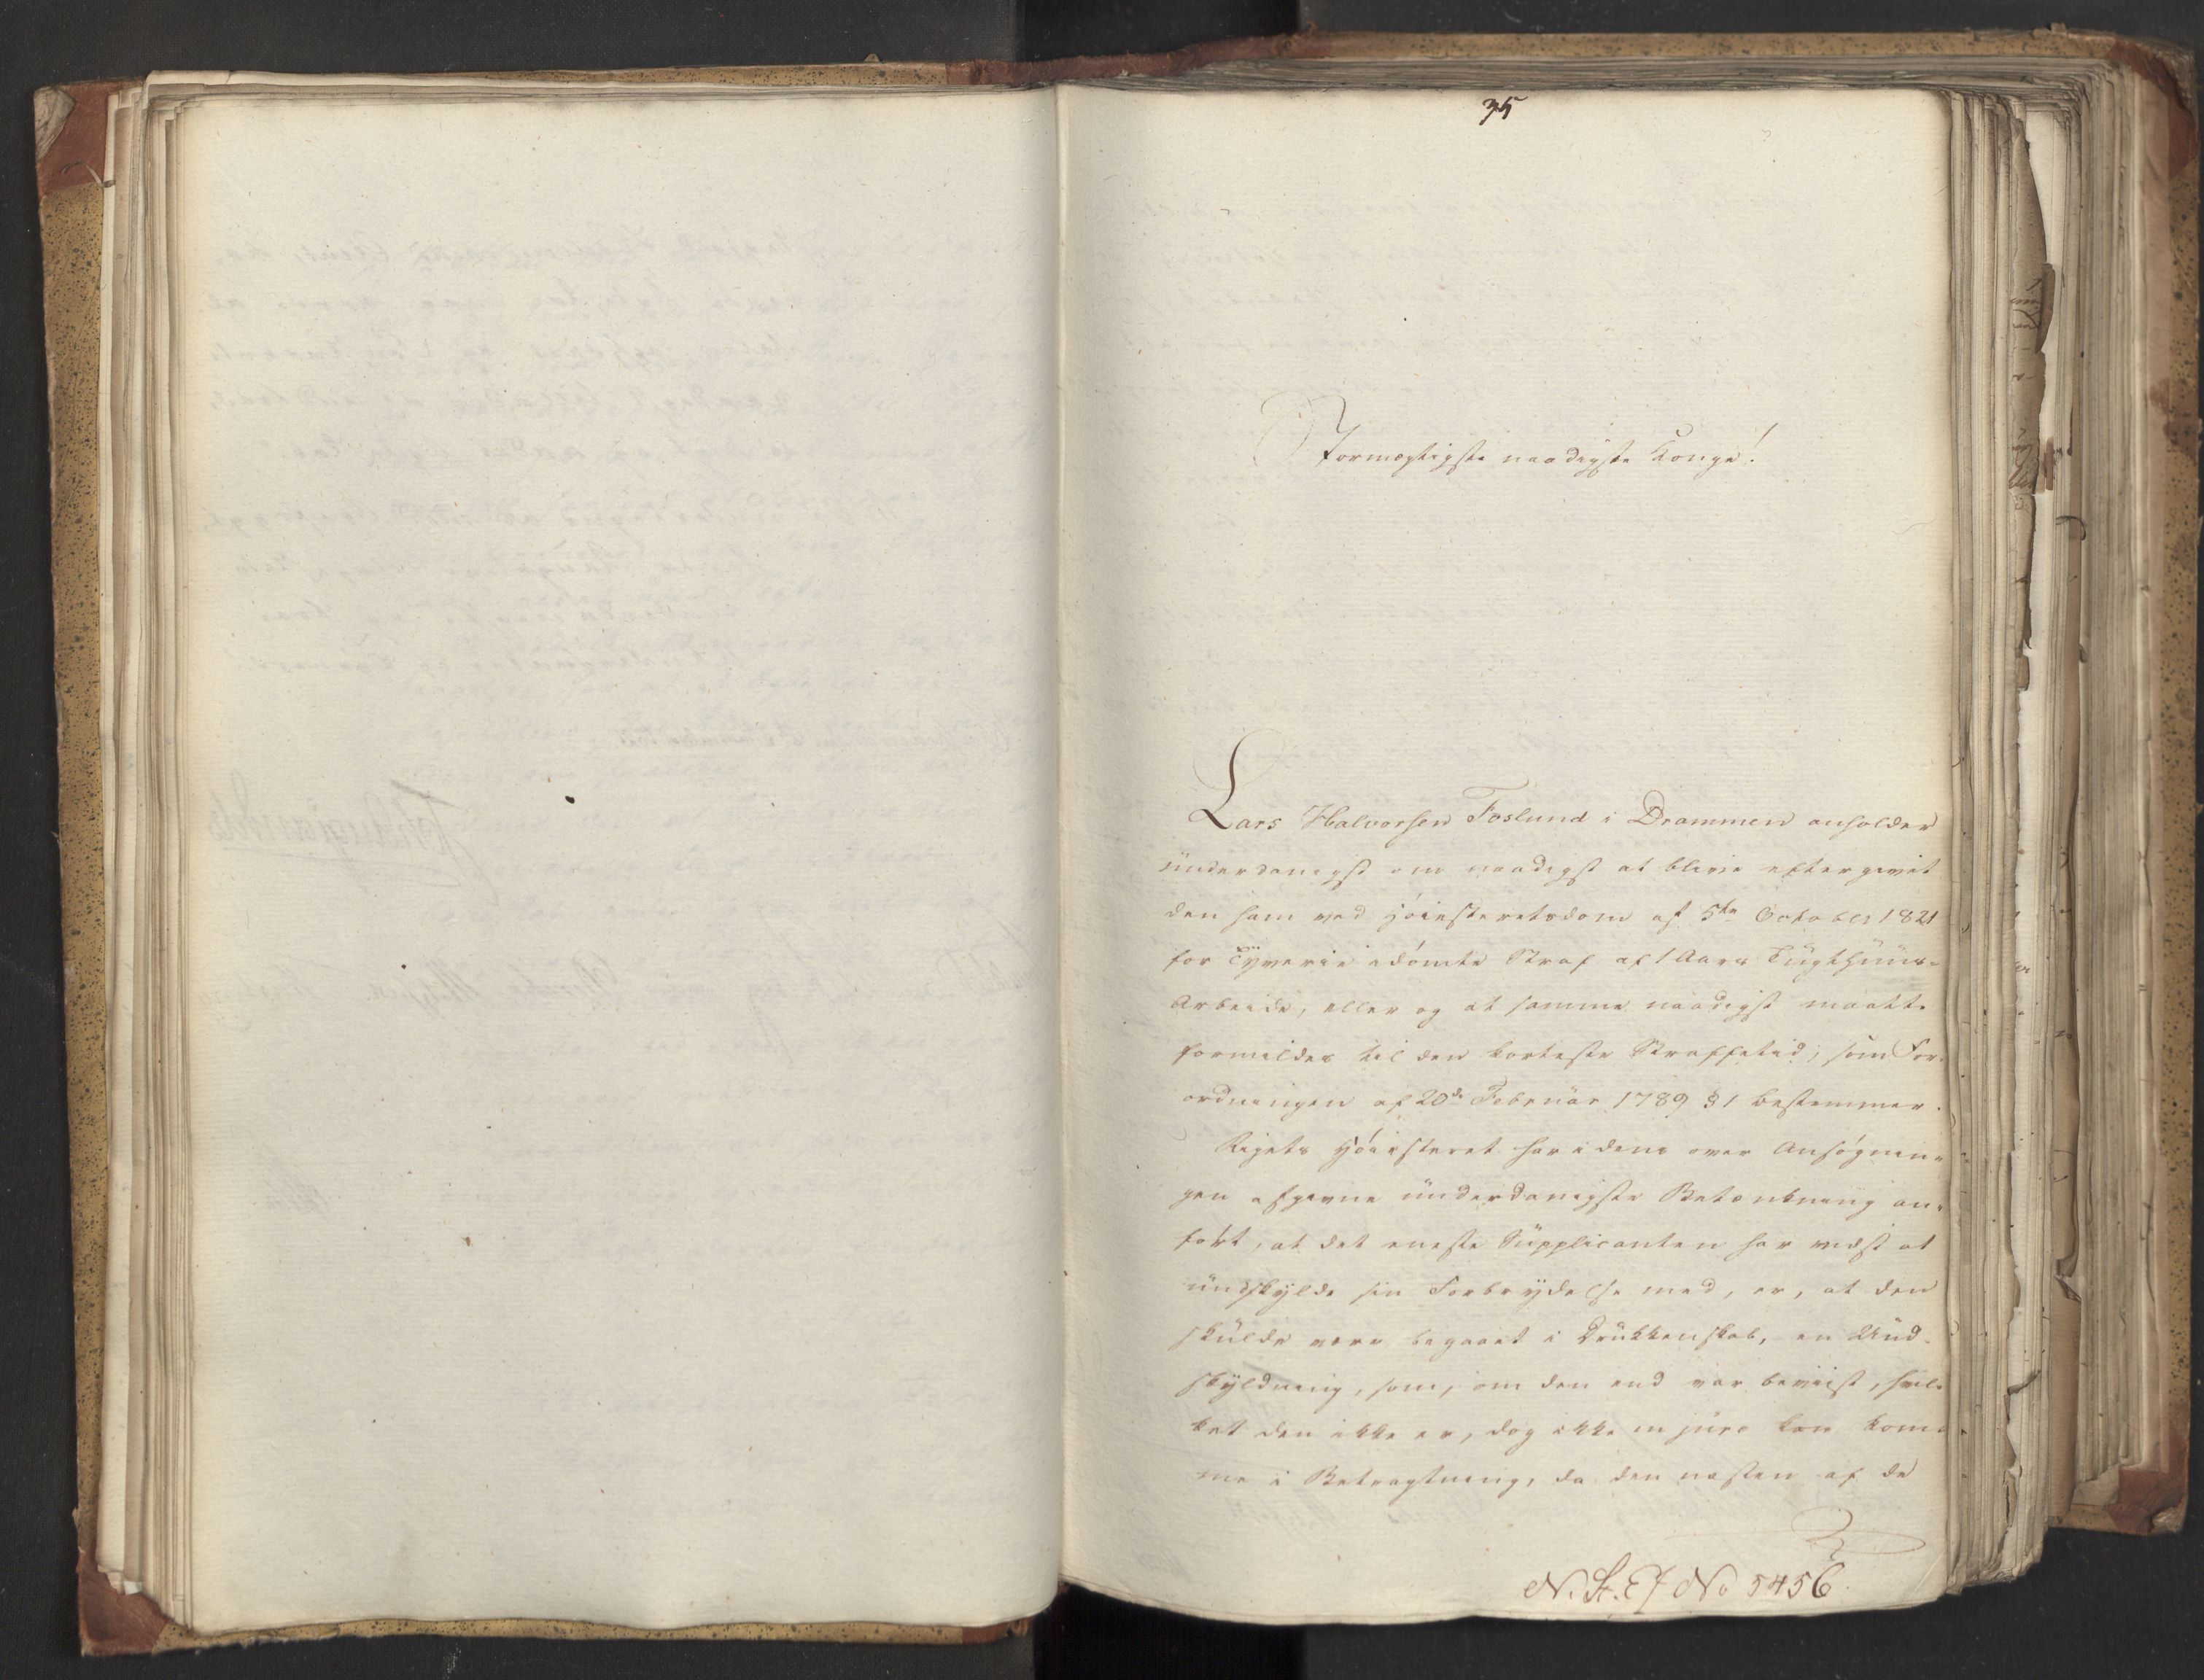 35
Stormægtigste naadigste Konge!
Lars Halvorsen Foslund i Drammen anholder
ünderdanigst om naadigst at blive eftergivet
den ham ved Höiesteretsdom af 5te October 1821
for Tÿverie idömte Straf af 1 Aars Tügthüüs-
Arbeide, eller og at samme naadigst maatte
formildes til den korteste Straffetid, som For-
ordningen af 20de Februar 1789 § 1 bestemmer.
Rigets Höiesteret har i dens over Ansögnin-
gen afgivne ünderdanigste Betænkning an-
fört, at det eneste Süpplicanten har vidst at
ündskÿlde sin Forbrÿdelse med, er, at den
skülde være begaaet i Drükkenskab, en Ünd-
skÿldning, som, om den end var beviist, hvil-
ket den ikke er, dog ikke in jure kan kom-
me i Betragtning, da den næsten af de
N. St. Ex No 5456.